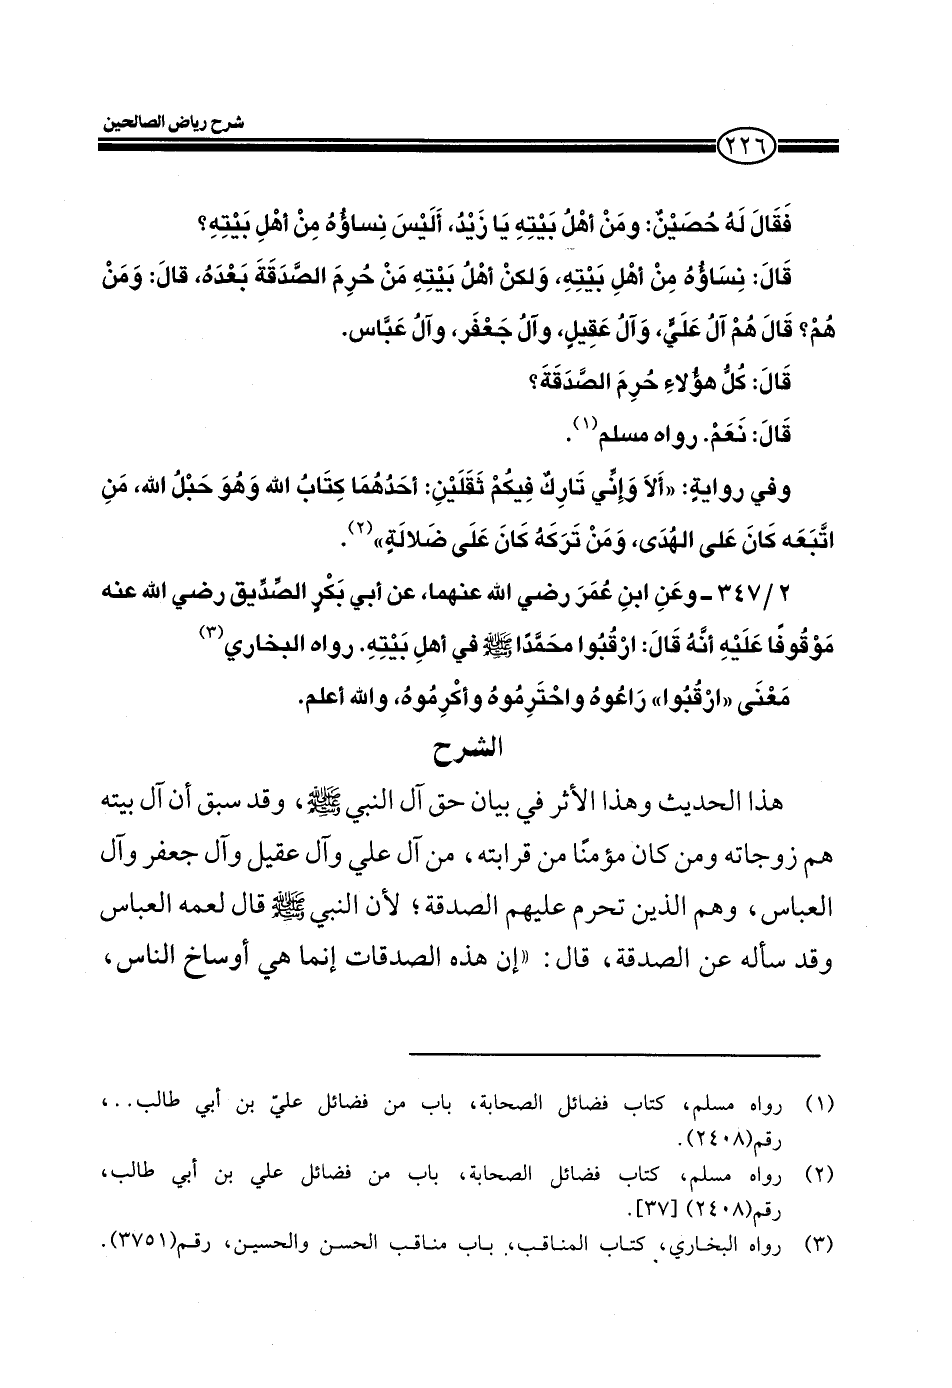 شرح رياض الصالحين
٢٢٦
فَقَالَ لَهُ حُصَيْنٌ: ومَنْ أهْلُ بَيْتِهِ يَا زَيْدُ، أَلَيْسَ نِساؤُهُ مِنْ أهْلِ بَيْتِهِ؟
قَالَ: نِسَاؤُهُ مِنْ أهْلِ بَيْتِهِ، وَلكنْ أهْلُ بَيْتِهِ مَنْ حُرِمَ الصَّدَقَةَ بَعْدَهُ، قالَ: وَمَنْ
هُمْ؟ قَالَ هُمْ آلُ عَلَيٍّ، وَآلُ عَقِيلٍ، وآلُ جَعْفَر، وآلُ عَبَّاس.
قَالَ: كُلُّ هؤُلاءِ حُرِمَ الصَّدَقَةَ؟
قَالَ: نَعَمْ. رواه مسلم(١).
وفي روايةٍ: «أَلاَ وَإِنِّي تَارِكٌ فِيكُمْ ثَقَلَيْنِ: أحَدُهُمَا كِتَابُ الله وَهُوَ حَبْلُ الله، مَنِ
اتَّبَعَه كَانَ عَلى الهُدَى، وَمَنْ تَرَكَهُ كَانَ عَلَى ضَلالَةٍ»(٢).
٣٤٧/٢ ـ وعَنِ ابنِ عُمَرَ رضي الله عنهما، عن أبي بَكْرٍ الصِّدِّيق رضي الله عنه
مَوْقُوفًا عَلَيْهِ أنَّهُ قَالَ: ارْقُبُوا محَمَّدًا ﷺ في أهلِ بَيْتِهِ. رواه البخاري(٣)
مَعْنَى «ارْقُبُوا» رَاعُوهُ واحْتَرِمُوهُ وأكْرِمُوهُ، والله أعلم.
الشرح
هذا الحديث وهذا الأثر في بيان حق آل النبي ﷺ، وقد سبق أن آل بيته
هم زوجاته ومن كان مؤمنًا من قرابته، من آل علي وآل عقيل وآل جعفر وآل
العباس، وهم الذين تحرم عليهم الصدقة؛ لأن النبي ﷺ قال لعمه العباس
وقد سأله عن الصدقة، قال: «إن هذه الصدقات إنما هي أوساخ الناس،
(١) رواه مسلم، كتاب فضائل الصحابة، باب من فضائل عليّ بن أبي طالب..،
رقم(٢٤٠٨).
(٢) رواه مسلم، كتاب فضائل الصحابة، باب من فضائل علي بن أبي طالب،
رقم(٢٤٠٨) [٣٧].
(٣) رواه البخاري، كتاب المناقب، باب مناقب الحسن والحسين، رقم(٣٧٥١).